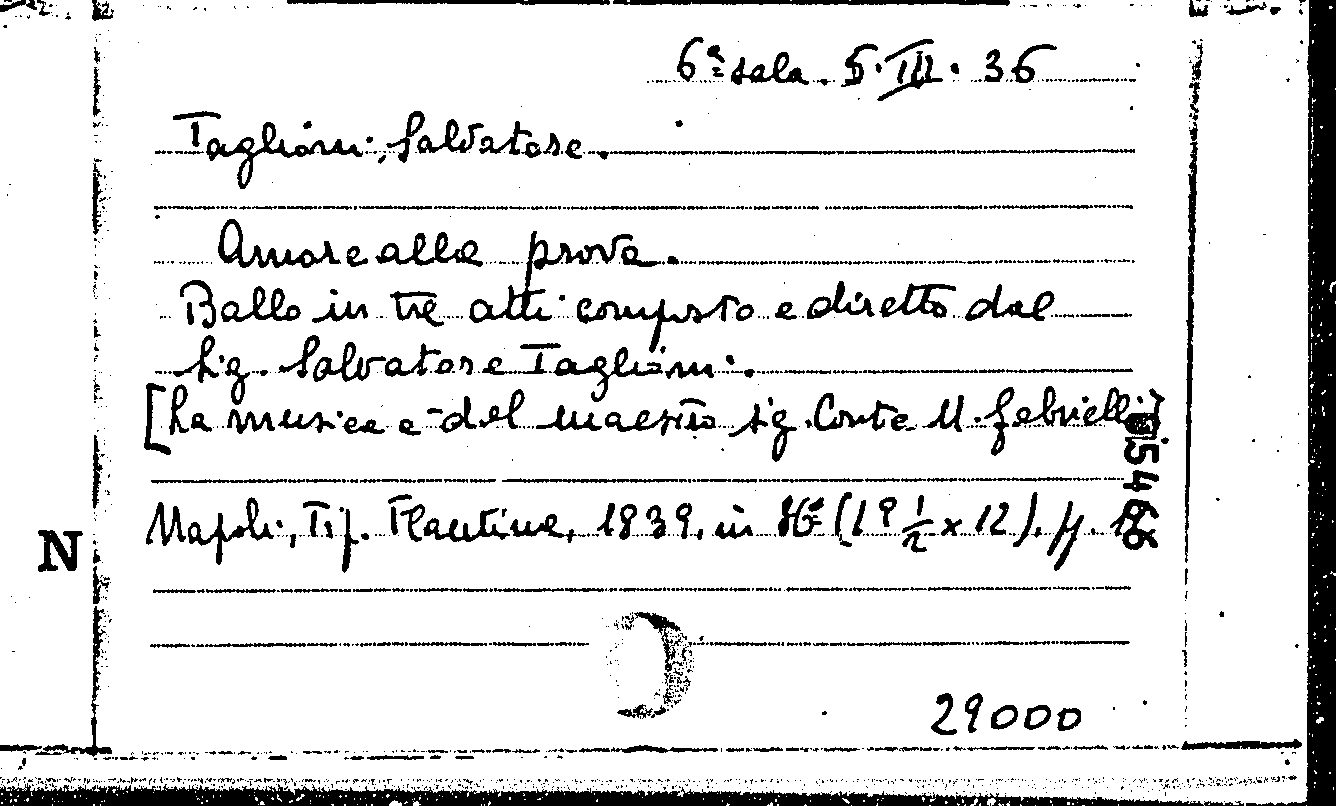 6ª sala. 5. III. 36
Taglioni, Salvatore.
Amore alla prova.
Ballo in tre atti composto e diretto dal
Sig. Salvatore Taglioni.
[La musica è del maestro sig. Conte N. Gabrielli]
Napoli, Tip. Flautina, 1839, in (19 1/2 x 12), pp.
N
29000